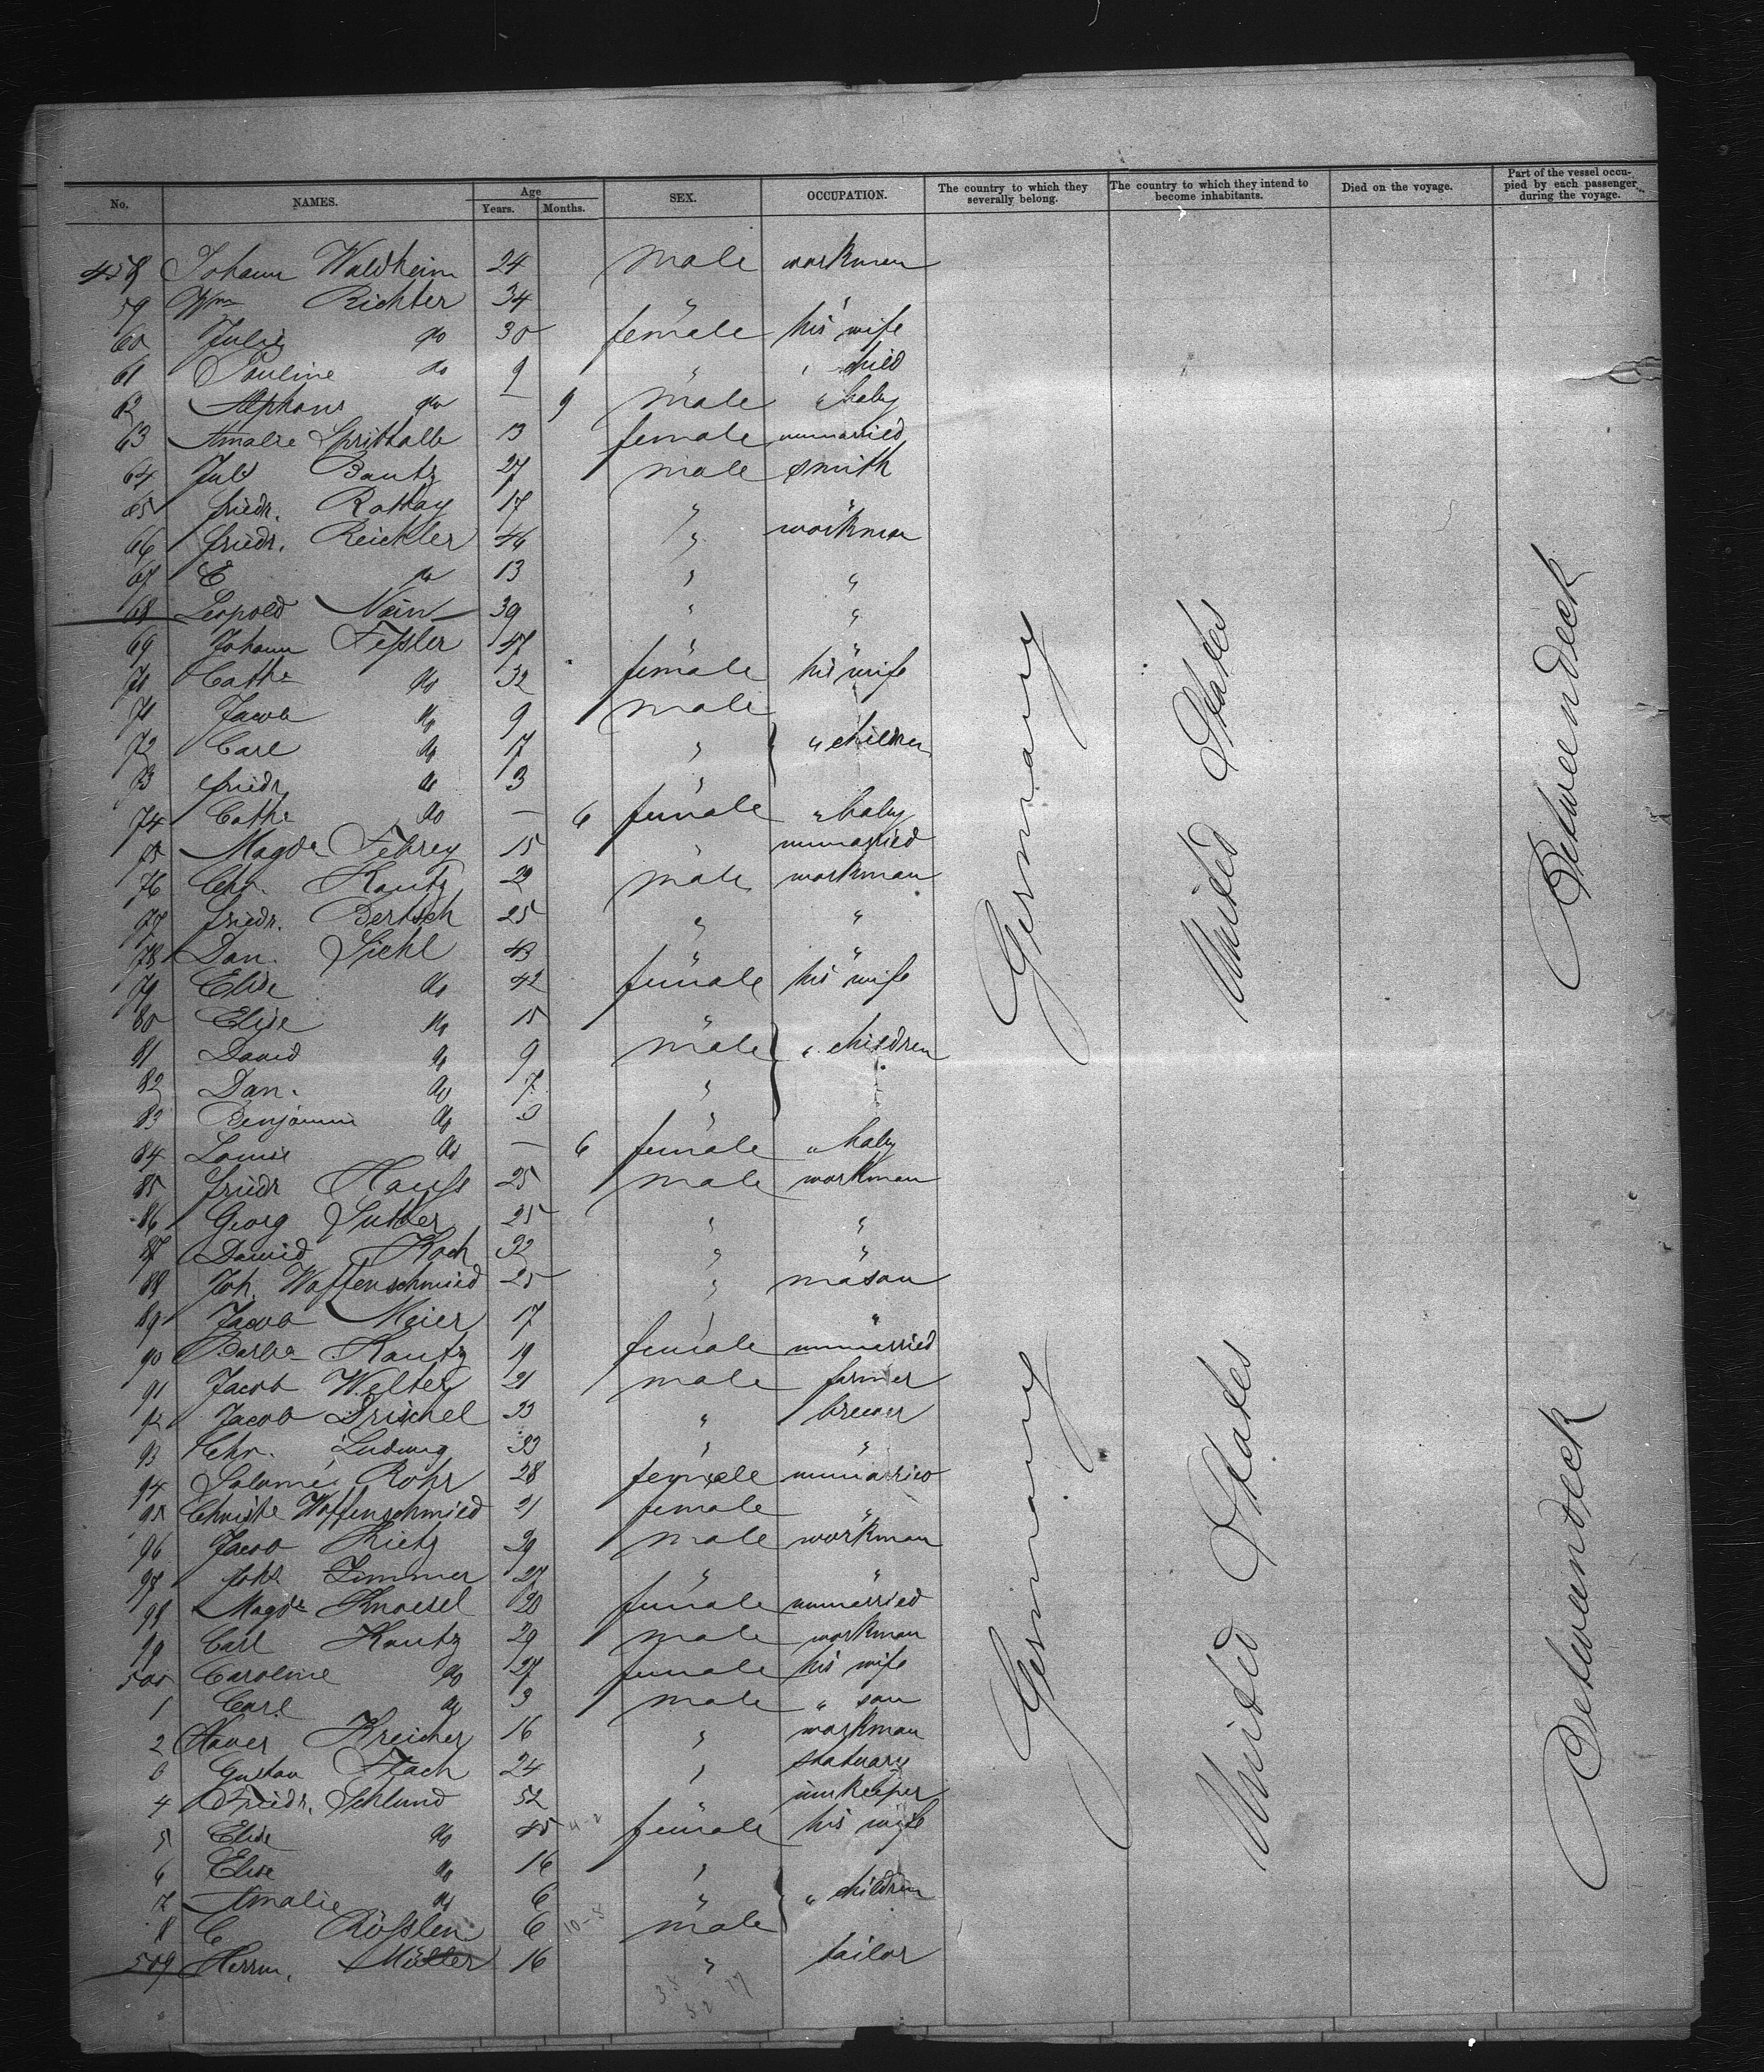 No. NAMES. Age Years. Months. SEX. OCCUPATION. The country to which they severally belong. The country to which they intend to become inhabitants. Died on the voyage. Part of the vessel occupied by each passenger during the voyage.
458 Johann Waldheim 24 male workman
59 Wm Richter 34 " "
60 Julie do 30 female his wife
61 Pauline do 9 " " child
62 Alphons do — 9 male " baby
63 Amalie 13 female unmarried
64 Jul Bautz 27 male smith
65 Friedr. Rattay 17 " "
66 Friedr. Reichler 46 " workman
67 E do 13 " "
68 Leopold Nain 39 " "
69 Johann Feßler 47 " "
70 Cathe do 32 female his wife
71 Jacob do 9 male
72 Carl do 17 " " children
73 Friedr do 3 "
74 Cathe do — 6 female " baby
75 Magde Febrey 15 " unmarried
76 Chr. Kautz 29 male workman
77 Friedr. Bertsch 25 " "
78 Dan. Siehl 43 " "
79 Elise do 42 female his wife
80 Elise do 15 "
81 David do 9 male " children
82 Dan. do 7 "
83 Benjamin do 3 "
84 Louise do — 6 female " baby
85 Friedr Hauß 25 male workman
86 Georg Sutter 25 " "
87 David Koch 32 " "
88 Joh. Waffenschmied 25 " mason
89 Jacob Meier 17 " "
90 Barba Kautz 19 female unmarried
91 Jacob Welter 21 male farmer
92 Jacob Drischel 23 " brewer
93 Chr. Ludwig 33 " "
94 Salomé Rohr 28 female unmarried
95 Christe Waffenschmied 21 female "
96 Jacob Rietz 29 male workman
97 Johs Zimmer 27 " "
98 Magde Knoesel 20 female unmarried
99 Carl Kautz 29 male workman
500 Caroline do 27 female his wife
1 Carl do 3 male " son
2 Xaver Kreicher 16 " workman
3 Gustav Flach 24 " statuary
4 Friedr. Schlund 52 " innkeeper
5 Elise do 45 female his wife
6 Elise do 16 "
7 Amalie do 6 " " children
8 C Rößlen 6 10-8 male
509 Herrm. Müller 16 " tailor
Germany United States Betweendeck
Germany United States Betweendeck